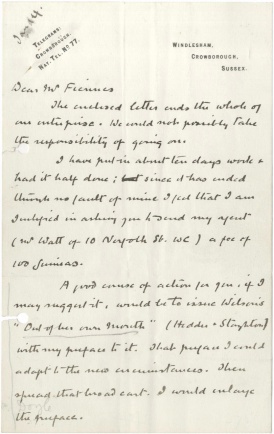 Jan 14.
TELEGRAMS:
CROWBOROUGH.
NAT. TEL. NO 77.
WINDLESHAM,
CROWBOROUGH,
SUSSEX.
Dear Mr Fiennes
The enclosed letter ends the whole of
our enterprise. We could not possibly take
the responsibility of going on.
I have put in about ten days work &
had it half done; but since it has ended
through no fault of mine I feel that I am
justified in asking you to send my agent
(Mr Watt of 10 Norfolk St. WC) a fee of
100 Guineas.
A good course of action for you, if I
may suggest it, would be to issue
"Out of her own Mouth" (Hodder & Stoughton)
with my preface to it. That preface I could
adapt to the new circumstances. Then
spread that broad cast. I would enlarge
the preface.